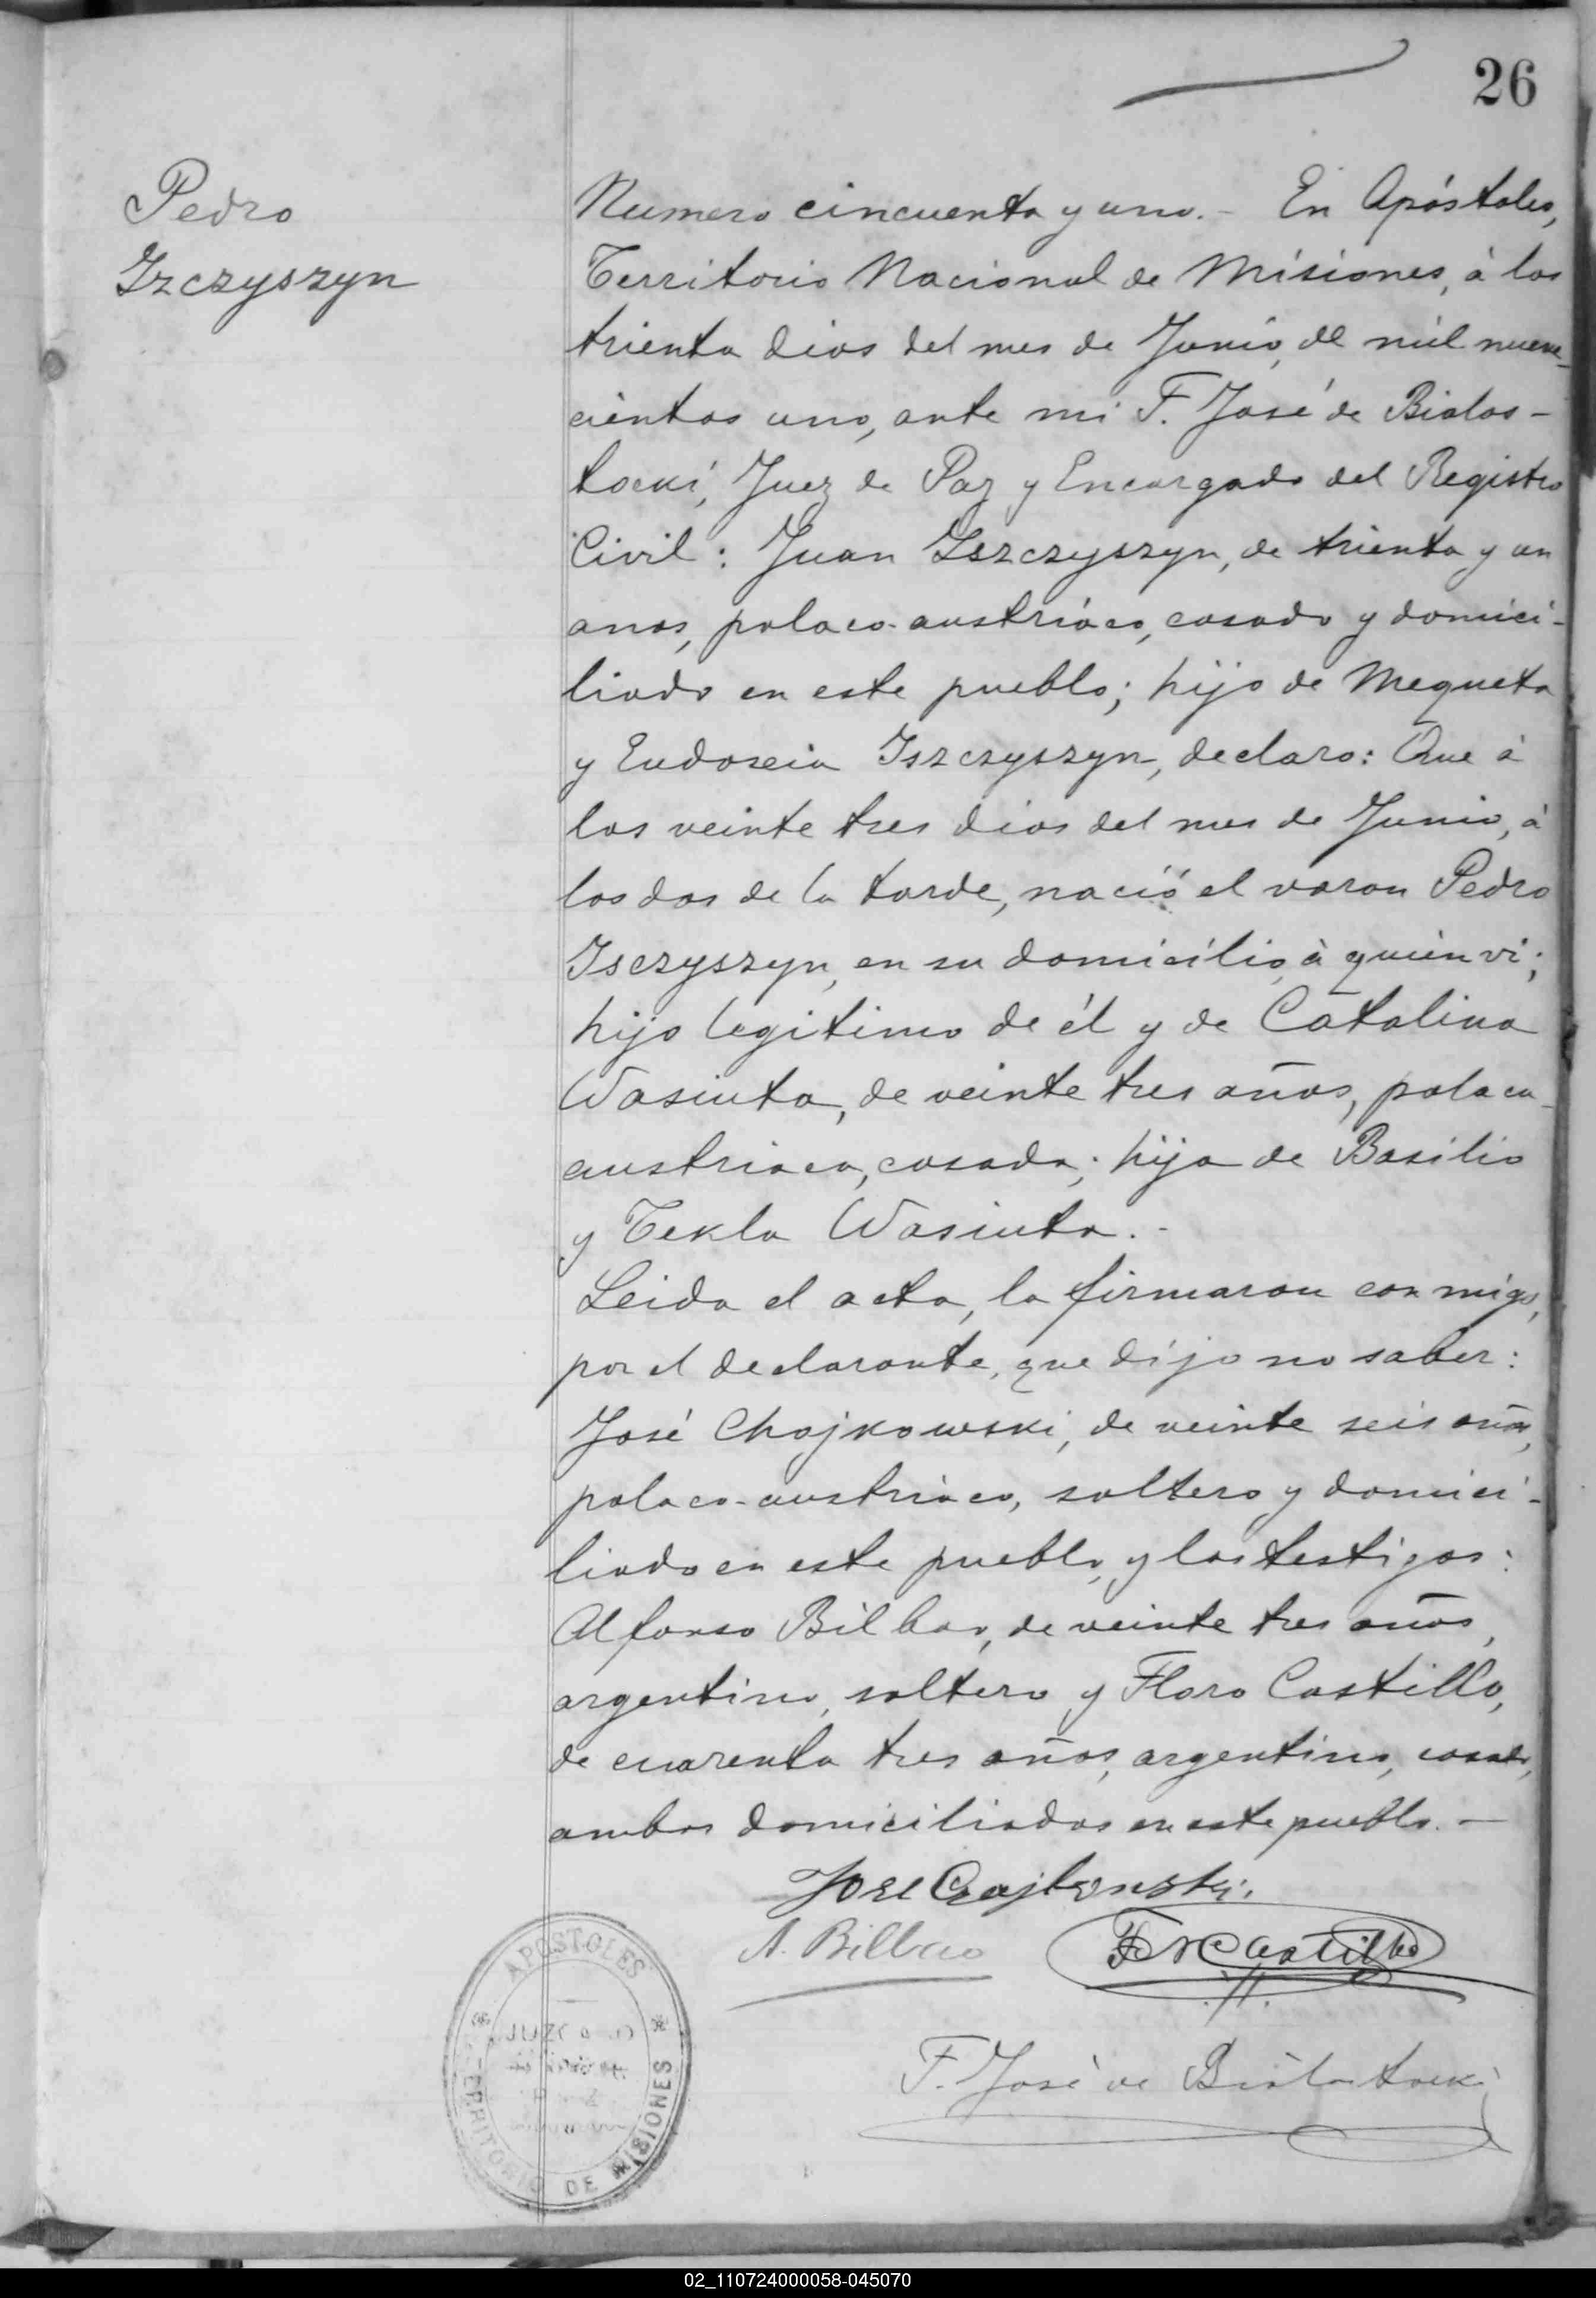 26
Pedro
Izczyszyn
Numero cincuenta y uno.- En Apóstoles,
Territorio Nacional de Misiones, á los
trienta dias del mes de Junio, de mil nueve-
cientos uno, ante mi F. José de Bialos-
tocki, Juez de Paz y Encargado del Registro
Civil: Juan Iszczyszyn, de trienta y un
anos, polaco-austriáco, casado y domici-
liado en este pueblo; hijo de Mequeta
y Eudoxia Iszczyszyn, declaro: Que á
los veinte tres dias del mes de Junio, á
las dos de la tarde, nació el varon Pedro
Isczyszyn, en su domicilio, à quien vi;
hijo legitimo de él y de Catalina
Wasiuta, de veinte tres años, polaca-
austriaca, casada; hija de Basilio
y Tekla Wasiuta.-
Leida el acta, la firmaron con migo,
por el declarante, que dijo no saber:
José Chojkowski, de veinte seis años,
polaco-austriaco, soltero y domici-
liado en este pueblo, y los testigos:
Alfonso Bilbao, de veinte tres años,
argentino, soltero y Floro Castillo,
de cuarenta tres años, argentino, casado,
ambos domiciliados en este pueblo.-
José
A. Bilbao Castillo
F. José de Bialostocki
APOSTOLES
JUZGADO
TERRITORIO DE MISIONES
02_110724000058-045070